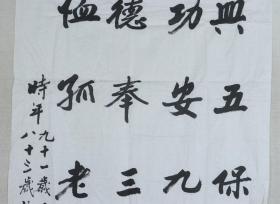 與五保
功安九
德奉三
恤孤老
時年九十一歲
八十三歲